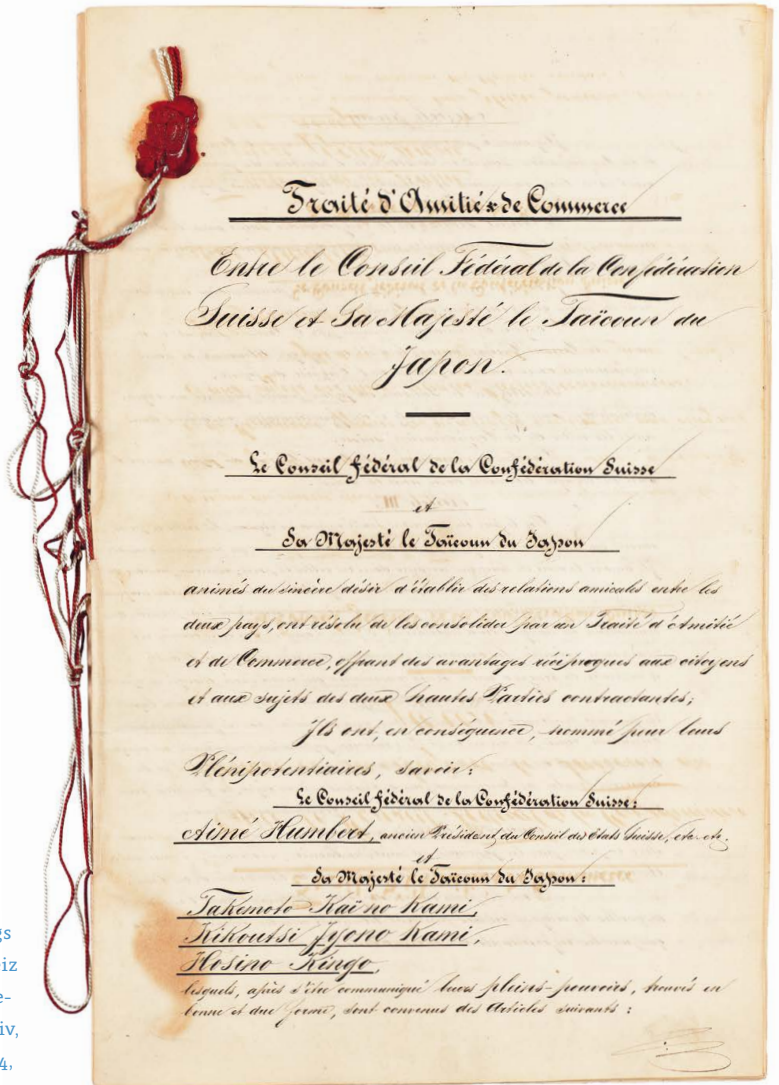 Traité d'Amitié & de Commerce
Entre le Conseil Fédéral de la Confédération
Suisse et Sa Majesté le Taïcoun du
Japon.
Le Conseil fédéral de la Confédération Suisse
et
Sa Majesté le Taïcoun du Japon
animés du sincère désir d'établir des relations amicales entre les
deux pays, ont résolu de les consolider par un Traité d'Amitié
et de Commerce, offrant des avantages réciproques aux citoyens
et aux sujets des deux hautes Parties contractantes;
Ils ont, en conséquence, nommé pour leurs
Plénipotentiaires, savoir:
Le Conseil fédéral de la Confédération Suisse:
Aimé Humbert, ancien Président du Conseil des Etats Suisse, etc. etc.
et
Sa Majesté le Taïcoun du Japon:
Takemoto Kaï no Kami,
Kikoutsi Iyono Kami,
Hosino Kingo,
lesquels, après s'être communiqué leurs pleins-pouvoirs, trouvés en
bonne et due forme, sont convenus des Articles suivants:
gs
iz
e-
iv,
4,